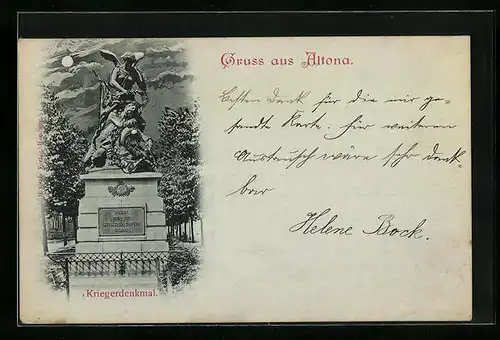 Gruss aus Altona.
Besten Dank für die mir ge-
sandte Karte. Für weiteren
Austausch wäre sehr dank-
bar
Helene Bock.
Kriegerdenkmal.